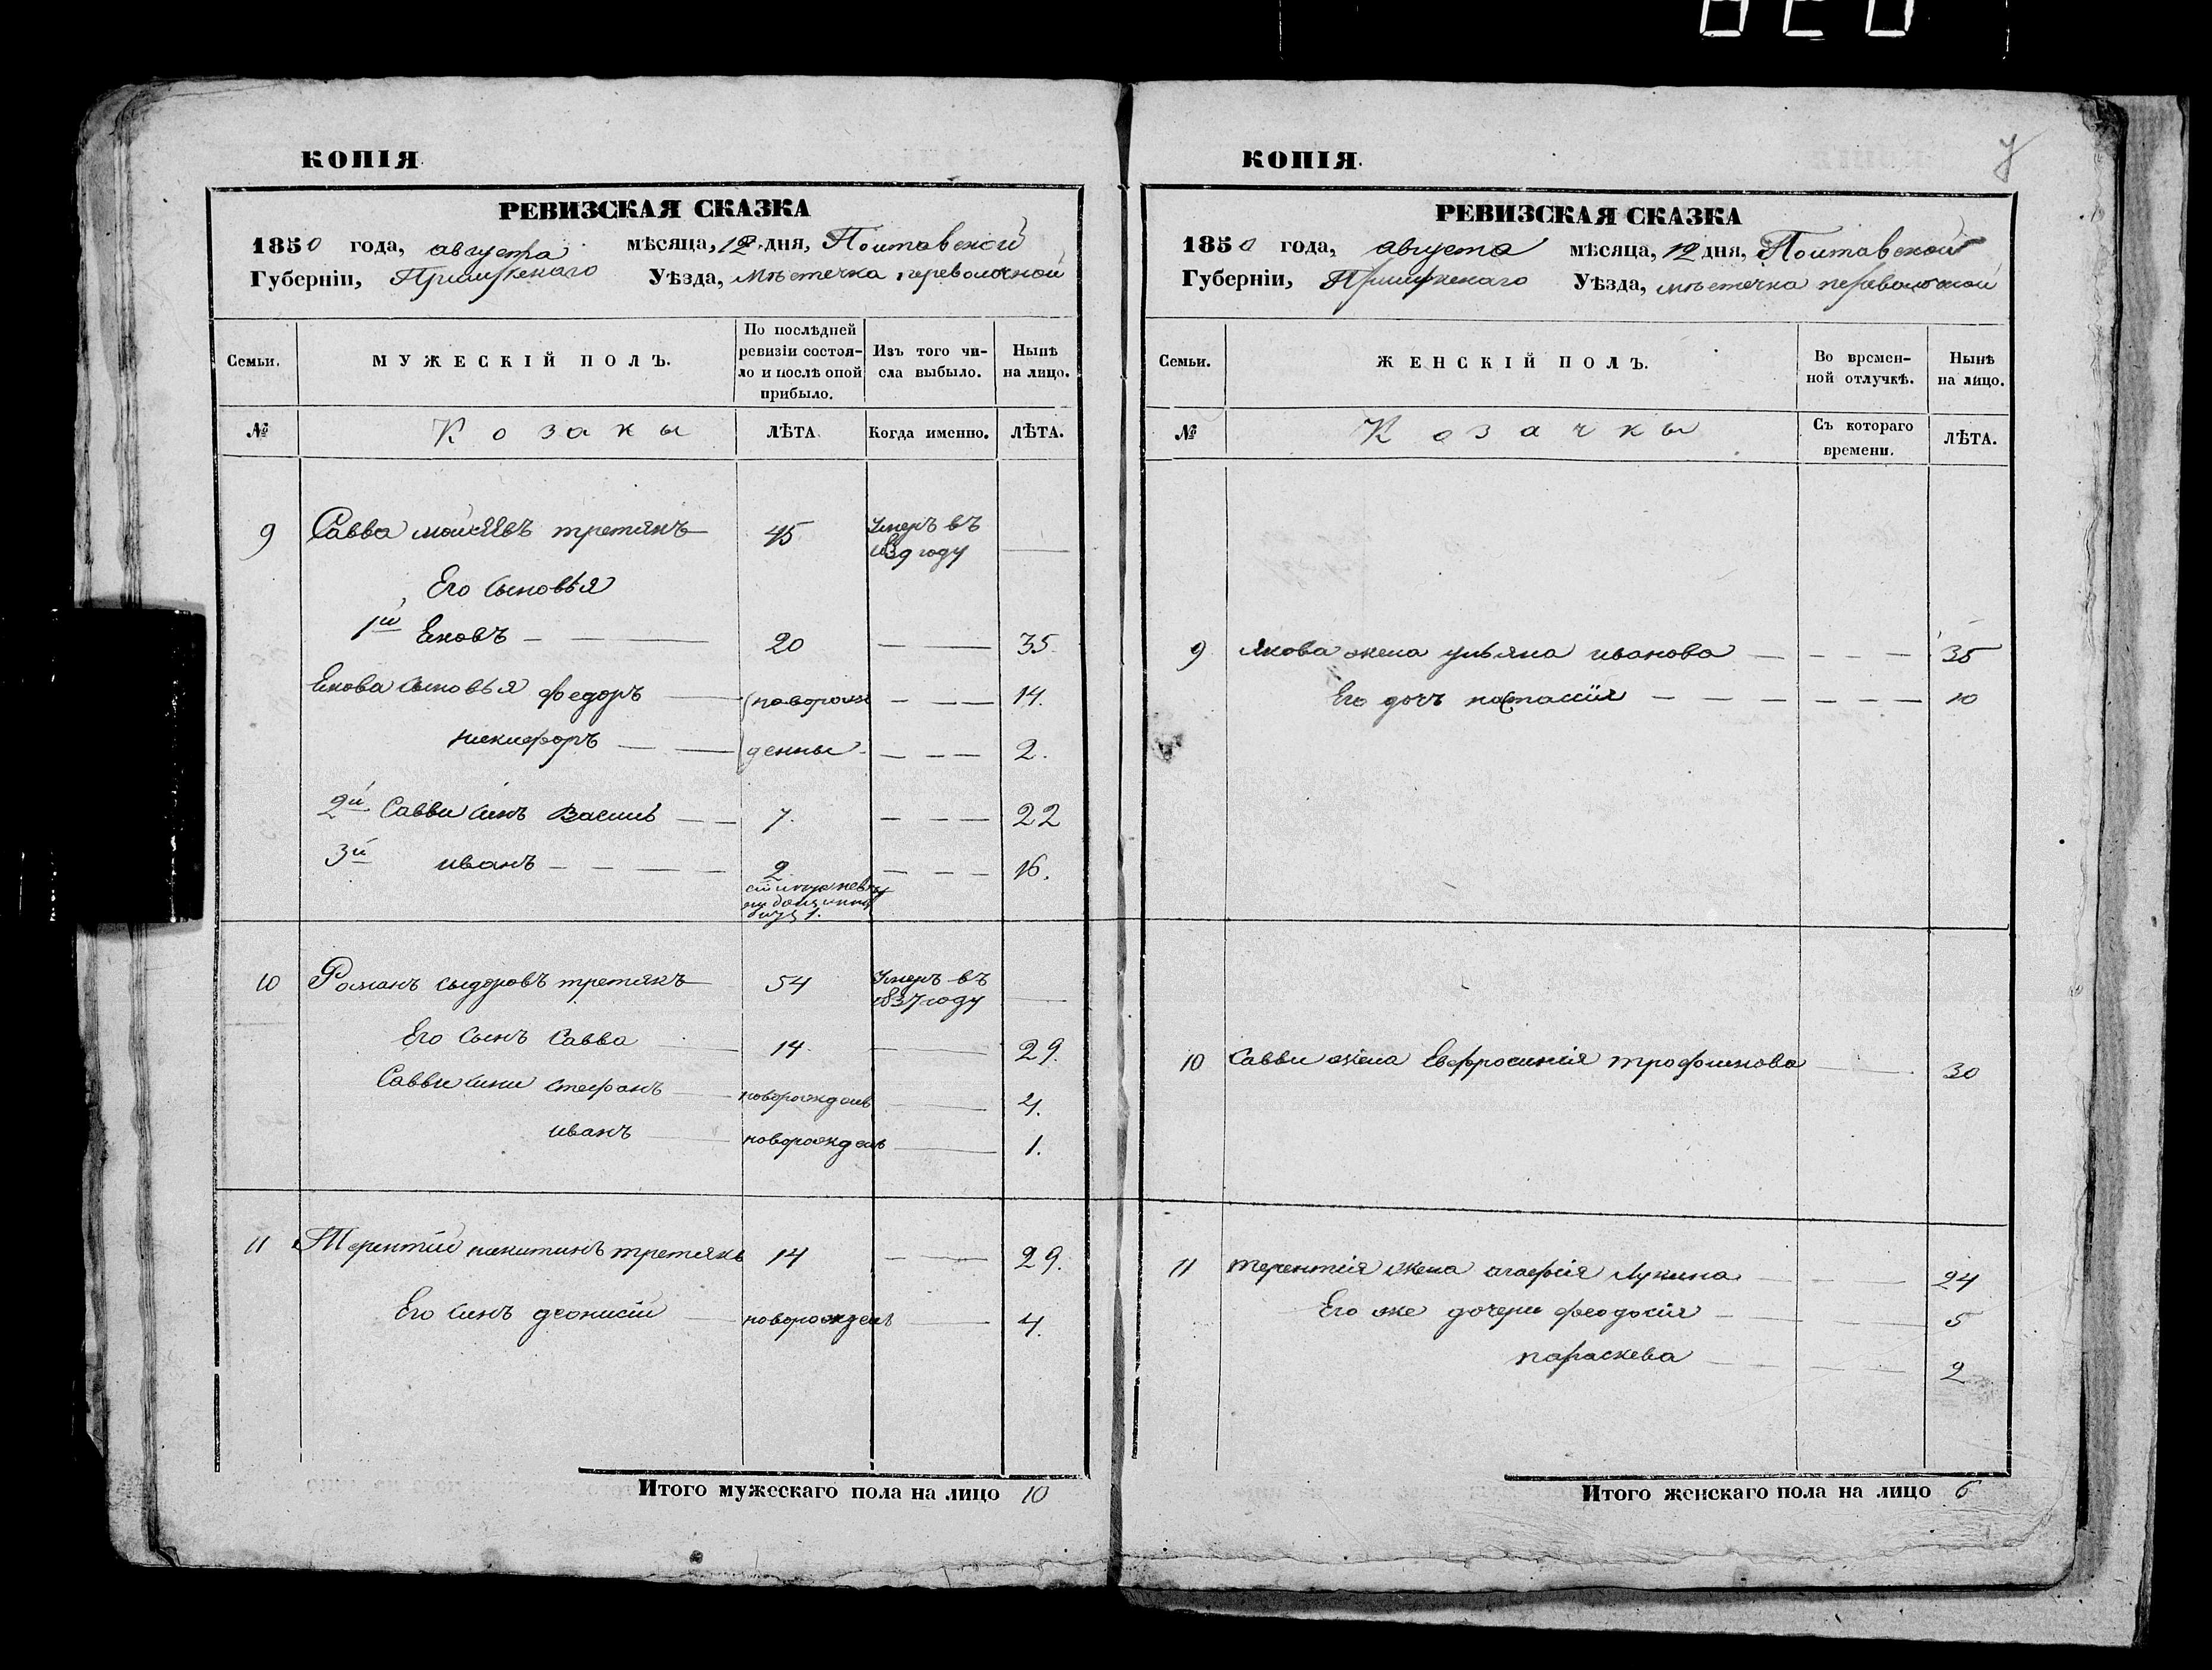 КОПІЯ.
РЕВИЗСКАЯ СКАЗКА
1850 года, августа мѣсяца, 12 дня, Полтавской
Губерніи, Прилуцкаго Уѣзда, мѣстечка переволочной
Семьи.
МУЖЕСКІЙ ПОЛЪ.
По послѣдней ревизіи состоя-
ло и послѣ оной прибыло.
Изъ того чи-
сла выбыло.
Нынѣ
на лицо.
№ Козаки ЛѢТА. Когда именно. ЛѢТА.
9 Савва моисѣевъ третякъ 45 Умеръ въ
1839 году
Его сыновья
1й Яковъ 20 35
Якова сыновья федоръ новорож 14.
никифоръ денные 2.
2й Саввы синъ Василь 7. 22
3й иванъ 2 16.
10 Романъ сыдоровъ третякъ 54 Умеръ въ
1837 году
Его сынъ Савва 14 29.
Саввы сини стефанъ новорожденъ 4.
иванъ новорожденъ 1.
11 Терентій никитинъ третякъ 14 29.
Его синъ деонисій новорожденъ 4.
Итого мужескаго пола на лицо 10
КОПІЯ.
РЕВИЗСКАЯ СКАЗКА
1850 года, августа мѣсяца, 12 дня, Полтавской
Губерніи, Прилуцкаго Уѣзда, мѣстечка переволочной
Семьи.
ЖЕНСКІЙ ПОЛЪ.
Во времен-
ной отлучкѣ.
Нынѣ
на лицо.
№ Козачки Съ котораго
времени. ЛѢТА.
9 Якова жена ульяна иванова 35
Его дочъ настасія 10
10 Саввы жена Евфросинія трофимова 30
11 Терентія жена агафія Лукина 24
Его же дочери феодосія 5
параскева 2
Итого женскаго пола на лицо 6